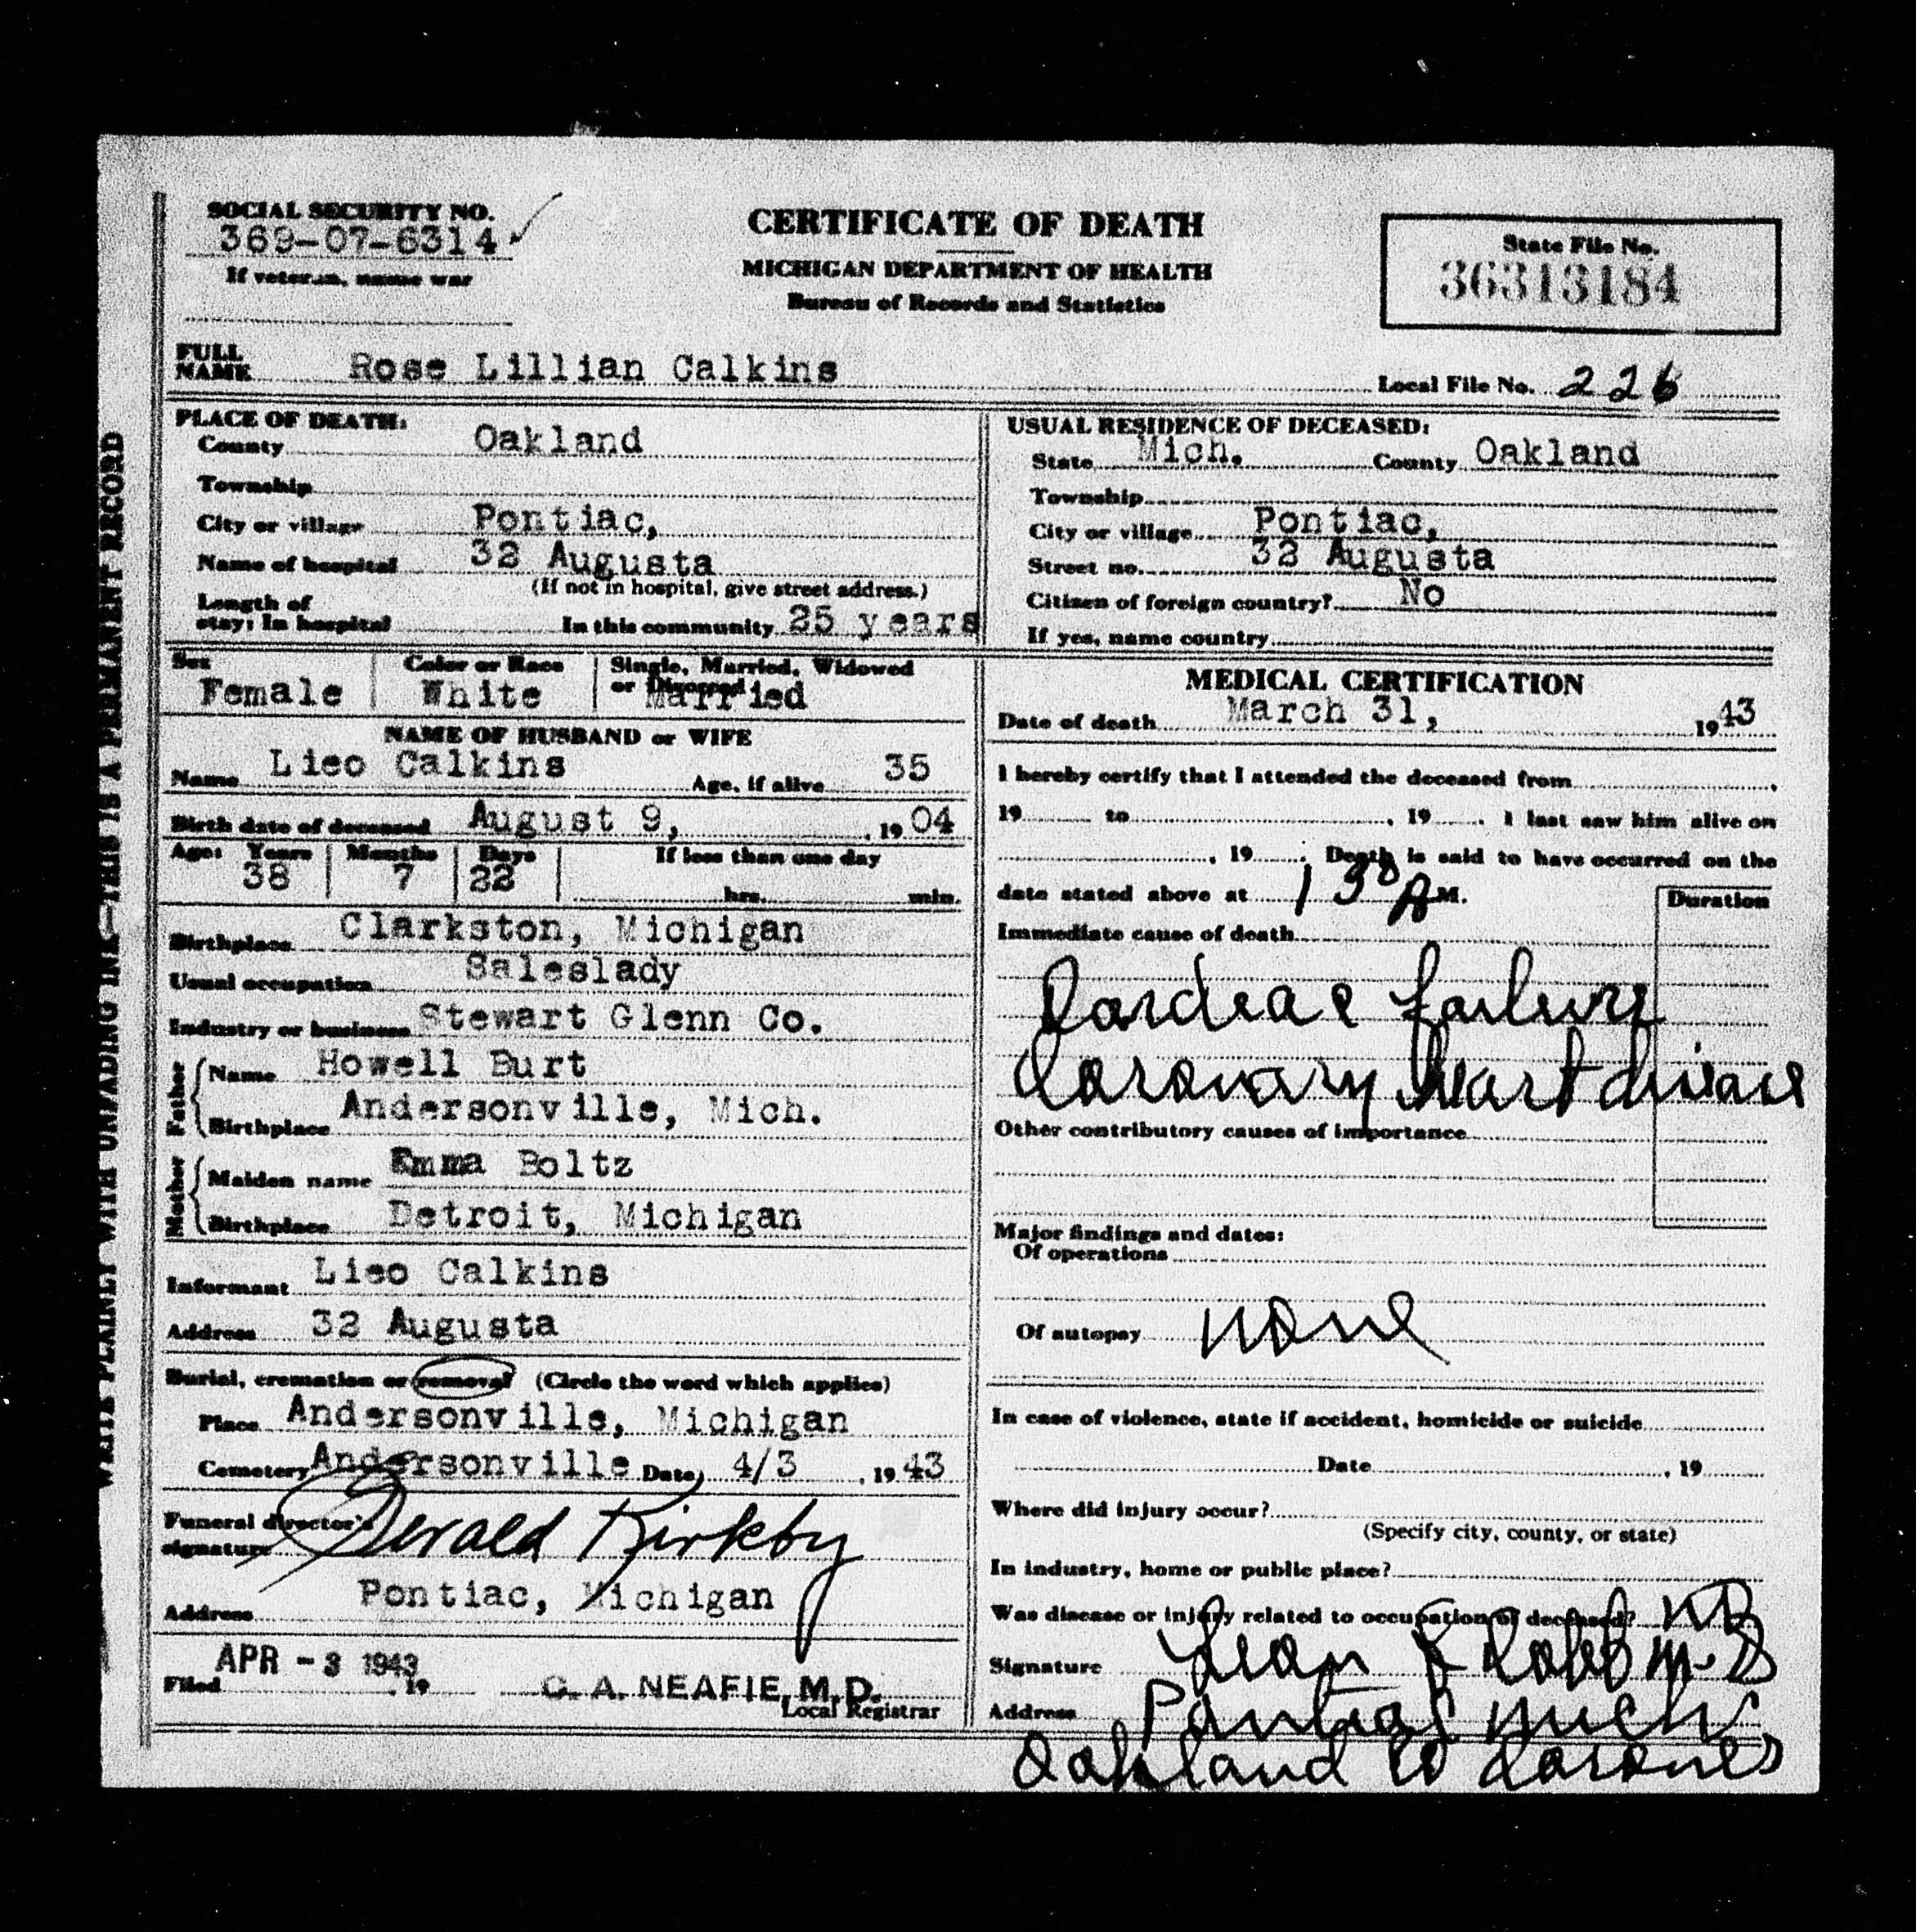 SOCIAL SECURITY NO.
369-07-6314
If veteran, name war
CERTIFICATE OF DEATH
MICHIGAN DEPARTMENT OF HEALTH
Bureau of Records and Statistics
State File No.
36313184
FULL NAME Rose Lillian Calkins
Local File No. 226
WRITE PLAINLY WITH UNFADING INK—THIS IS A PERMANENT RECORD
PLACE OF DEATH:
County Oakland
Township
City or village Pontiac,
Name of hospital 32 Augusta
(If not in hospital, give street address.)
Length of stay: In hospital In this community 25 years
USUAL RESIDENCE OF DECEASED:
State Mich. County Oakland
Township
City or village Pontiac,
Street no. 32 Augusta
Citizen of foreign country? No
If yes, name country
Sex Color or Race Single, Married, Widowed or Divorced
Female White Married
NAME OF HUSBAND or WIFE
Name Lieo Calkins Age, if alive 35
Birth date of deceased August 9, , 1904
Age: Years Months Days If less than one day
38 7 22 hrs. min.
Birthplace Clarkston, Michigan
Usual occupation Saleslady
Industry or business Stewart Glenn Co.
Father
Name Howell Burt
Birthplace Andersonville, Mich.
Mother
Maiden name Emma Boltz
Birthplace Detroit, Michigan
Informant Lieo Calkins
Address 32 Augusta
Burial, cremation or removal (Circle the word which applies)
Place Andersonville, Michigan
Cemetery Andersonville Date, 4/3 , 1943
Funeral director's signature Gerald Kirkby
Address Pontiac, Michigan
APR - 3 1943
Filed , 19 C. A. NEAFIE, M. D.
Local Registrar
MEDICAL CERTIFICATION
Date of death March 31, 1943
I hereby certify that I attended the deceased from ,
19 to , 19 . I last saw him alive on
, 19 ; Death is said to have occurred on the
date stated above at 1 30 M.
Duration
Immediate cause of death
Cardiac failure
Coronary heart disease
Other contributory causes of importance
Major findings and dates:
Of operations
Of autopsy none
In case of violence, state if accident, homicide or suicide
Date , 19
Where did injury occur?
(Specify city, county, or state)
In industry, home or public place?
Was disease or injury related to occupation of deceased? no
Signature M.D.
Address Pontiac Mich
Oakland Co Coroner